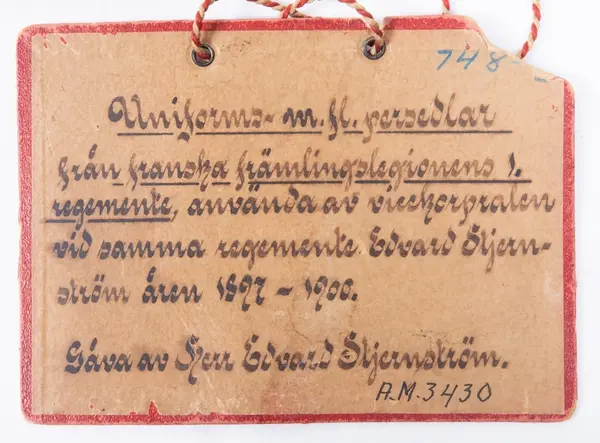 748
Uniforms- m. fl. persedlar
från franska främlingslegionens 1.
regemente, använda av vicekorpralen
vid samma regemente Edvard Stjern-
ström åren 1897 - 1900.
Gåva av Herr Edvard Stjernström.
A.M. 3430